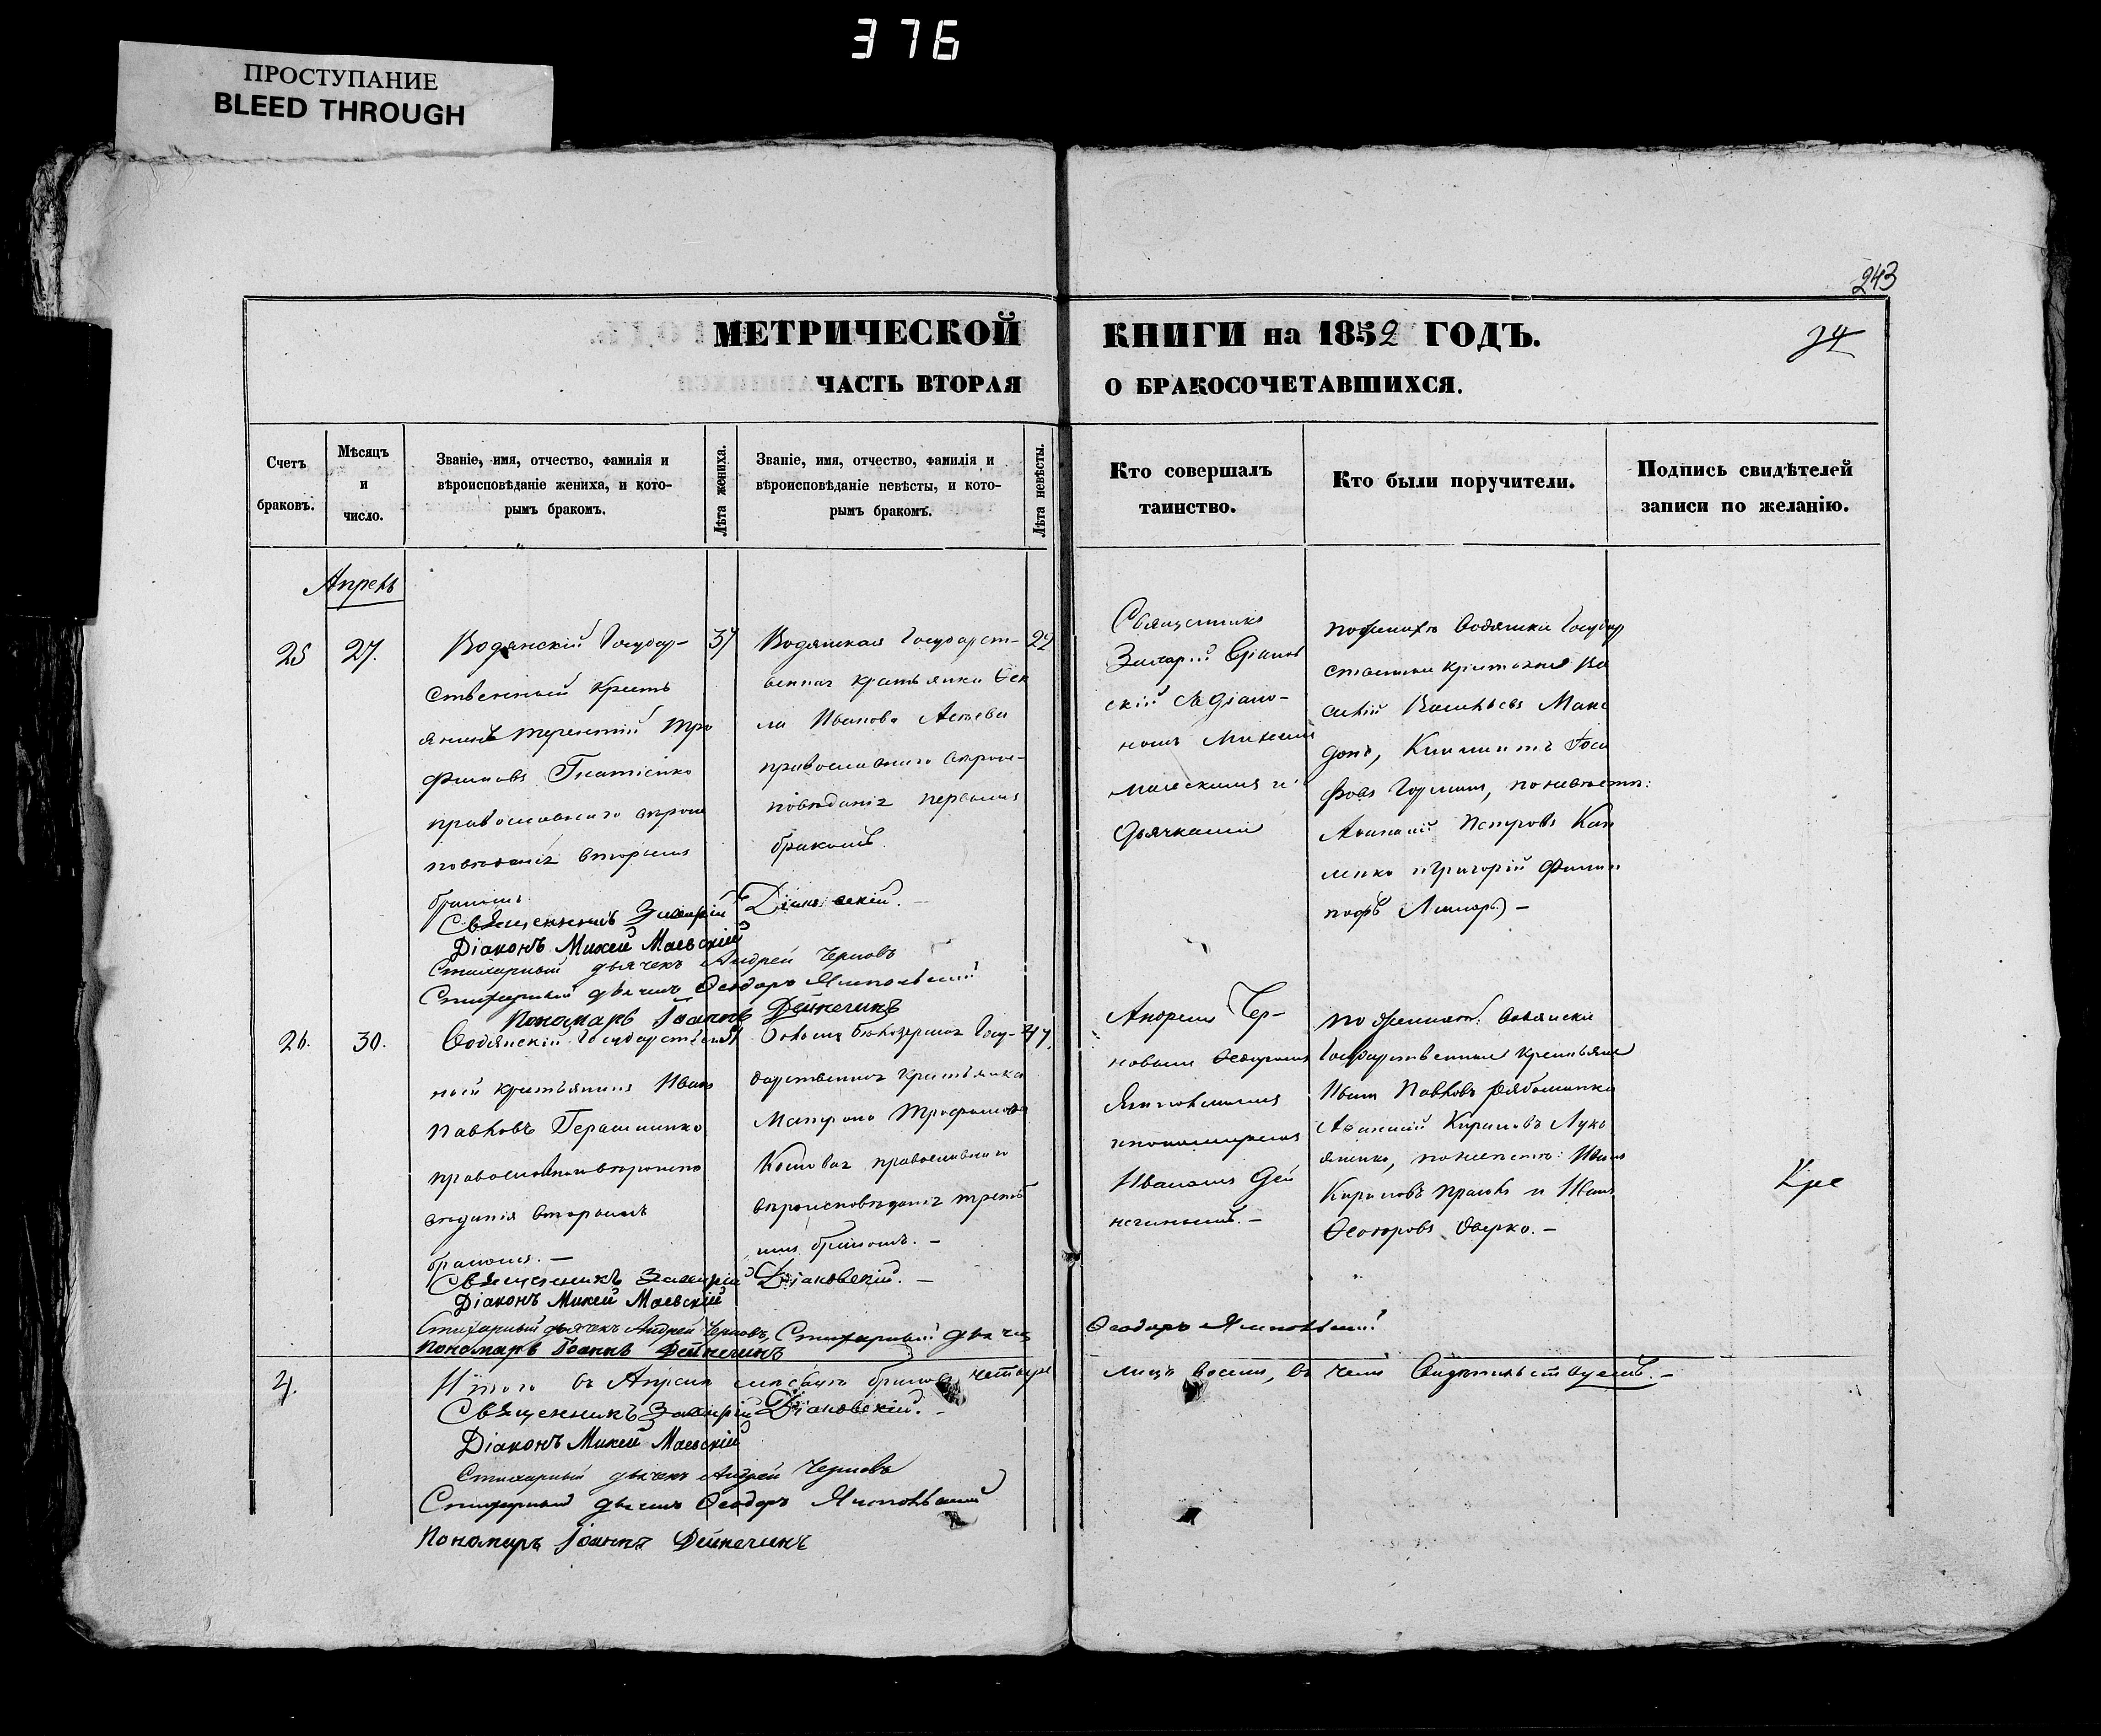 376
ПРОСТУПАНИЕ
BLEED THROUGH
243
МЕТРИЧЕСКОЙ КНИГИ на 1852 ГОДЪ.
ЧАСТЬ ВТОРАЯ О БРАКОСОЧЕТАВШИХСЯ.
Счетъ
браковъ.
Мѣсяцъ
и
число.
Званіе, имя, отчество, фамилія и
вѣроисповѣданіе жениха, и кото-
рымъ бракомъ.
Лѣта жениха.
Званіе, имя, отчество, фамилія и
вѣроисповѣданіе невѣсты, и кото-
рымъ бракомъ.
Лѣта невѣсты.
Кто совершалъ
таинство.
Кто были поручители.
Подпись свидѣтелей
записи по желанію.
Апрель
25
27.
Водянскій Государ-
ственный Кресть
янинъ Терентій Тро
фимовъ Гнатіенко
православнаго вѣроис
повѣданія вторымъ
бракомъ
37
Водянская Государст-
венная крестьянка Ѳек
ла Иванова
православнаго вѣроис-
повѣданія первымъ
бракомъ.
22
Священникъ
Захарій Діаков
скій съ Діако-
номъ Михеем
Маевскимъ и
дьячками
по женихѣ Водянски Государ
ственни крестьяне Ва
силій Васильевъ Мака
донъ, Климентъ Іоси
фовъ, по невѣстѣ:
Аѳанасій Петровъ
и Григорій Филип
повъ
Священникъ Захарій Діаковскій.
Діаконъ Михей Маевскій
Стихарный дьячекъ Андрей Черновъ
Стихарный дьячекъ Ѳеодоръ Ямпольскій
Пономарь Іоаннъ Дейнечинъ
26.
30.
Водянскій Государствен
ный крестьянинъ Иванъ
Павловъ Геращенко
православнаго вѣроиспо
вѣданія вторымъ
бракомъ. —
51
Государственная крестьянка
Матрона Трофимова
православнаго
вѣроисповѣданія треть
имъ бракомъ. —
47.
Андреем Чер-
новым Ѳеодоромъ
Ямпольскимъ
и пономаремъ
Иваномъ Дей
нечинымъ. —
по женихѣ: Водянски
Государственные крестьяне
Иванъ Павловъ Рябошапка
Аѳанасій Кириловъ Лукь
яненко, по невѣстѣ: Иванъ
Кириловъ и Иванъ
Ѳеодоровъ. —
Священникъ Захарій Діаковскій. —
Діаконъ Михей Маевскій
Стихарный дьячекъ Андрей Черновъ, Стихарный дьячекъ Ѳеодоръ Ямпольскій
Пономарь Іоаннъ Дейнечинъ
4.
Итого въ Апрелѣ мѣсяцѣ браковъ четыре лицъ восемь, въ чемъ Свидѣтельствуемъ. —
Священникъ Захарій Діаковскій. —
Діаконъ Михей Маевскій
Стихарный дьячекъ Андрей Черновъ
Стихарный дьячекъ Ѳеодоръ Ямпольскій
Пономарь Іоаннъ Дейнечинъ